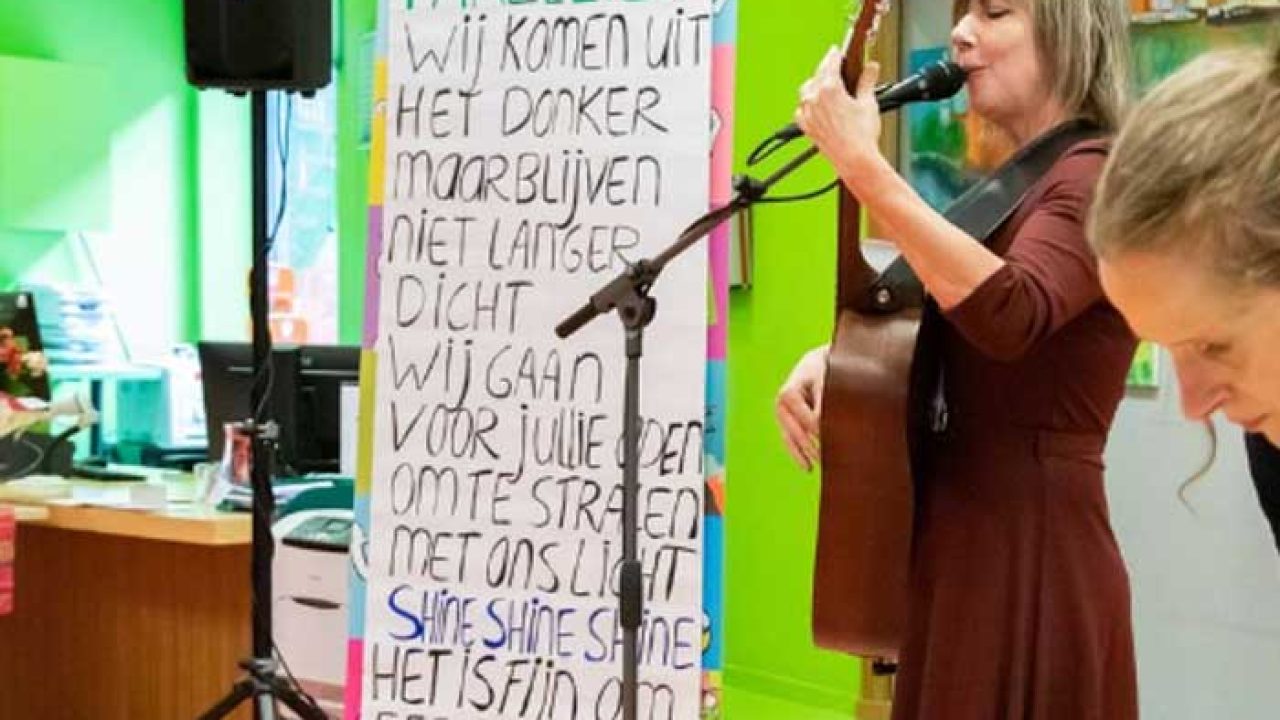 WIJ KOMEN UIT
HET DONKER
MAAR BLIJVEN
NIET LANGER
DICHT
WIJ GAAN
VOOR JULLIE OPEN
OM TE STRALEN
MET ONS LICHT
SHINE SHINE SHINE
HET IS FIJN OM